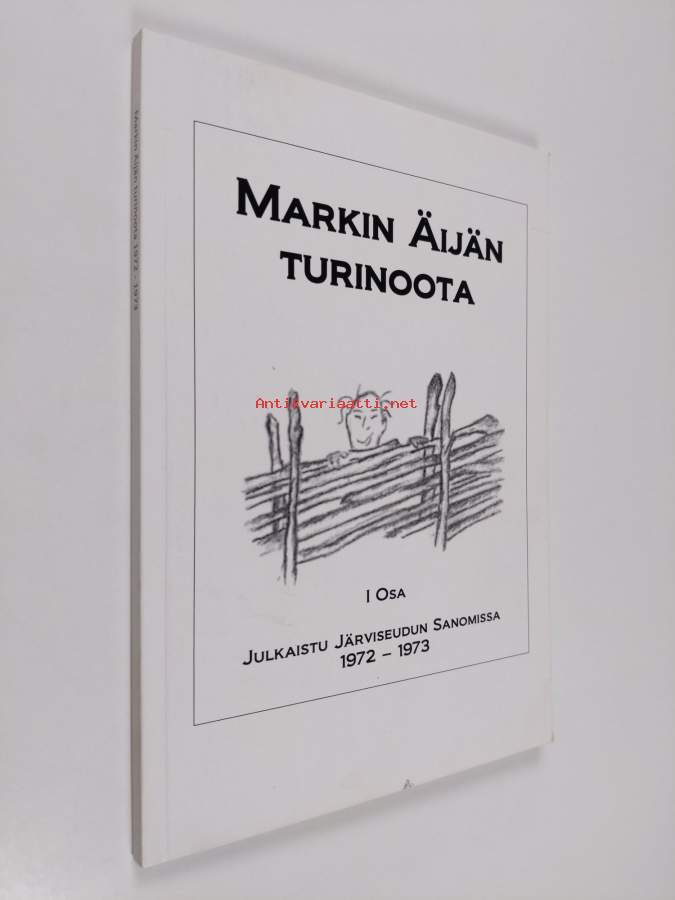 MARKIN ÄIJÄN
TURINOOTA
Antikvariaatti.net
I OSA
JULKAISTU JÄRVISEUDUN SANOMISSA
1972 – 1973
Markin Äijän turinoota 1972 - 1973
A.